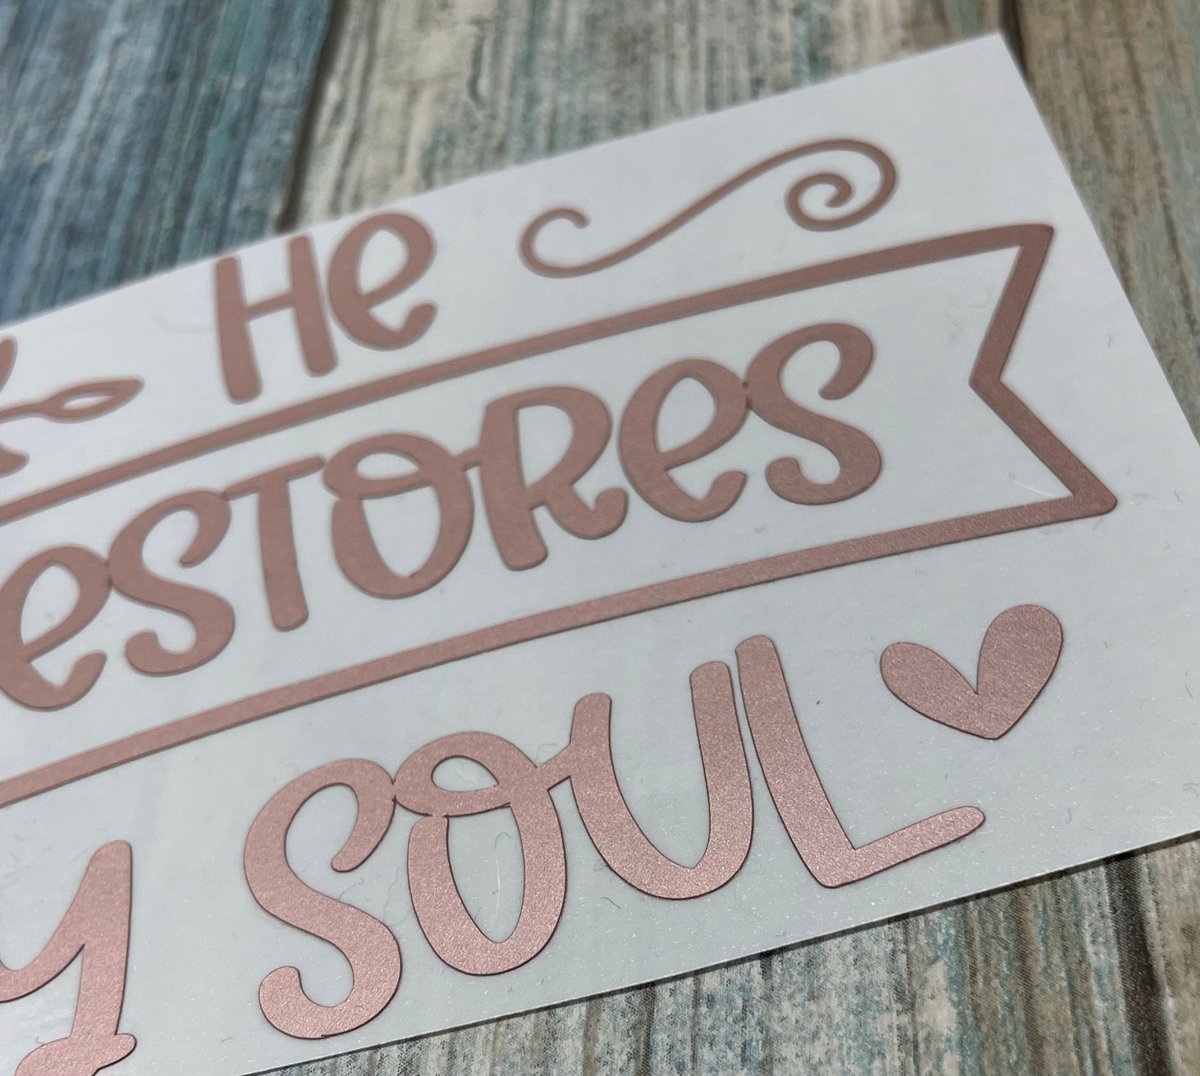 He
eSTOReS
y SOUL